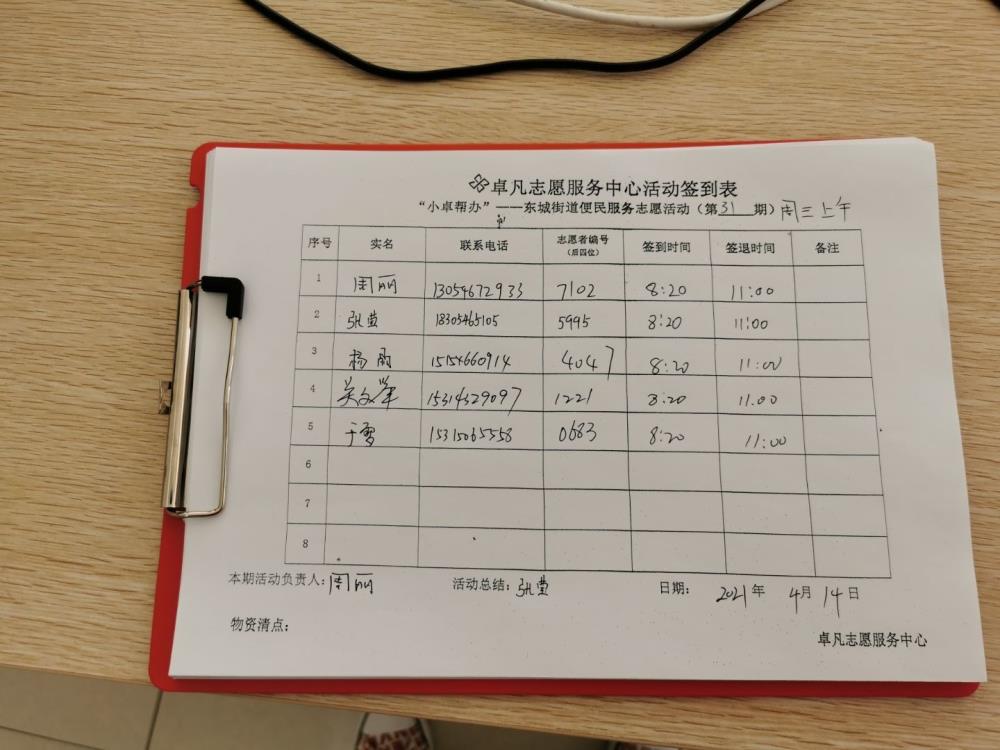 卓凡志愿服务中心活动签到表
“小卓帮办”——东城街道便民服务志愿活动（第31期）周三上午
序号 实名 联系电话 志愿者编号（后四位） 签到时间 签退时间 备注
1 周丽 13054672933 7102 8:20 11:00
2 张莹 18305465105 5995 8:20 11:00
3 杨雨 15154660914 4047 8:20 11:00
4 吴文苹 15314329097 1221 8:20 11.00
5 于雪 15315065558 0683 8:20 11:00
6
7
8
本期活动负责人：周丽 活动总结：张莹 日期： 2021年 4月 14日
物资清点：
卓凡志愿服务中心